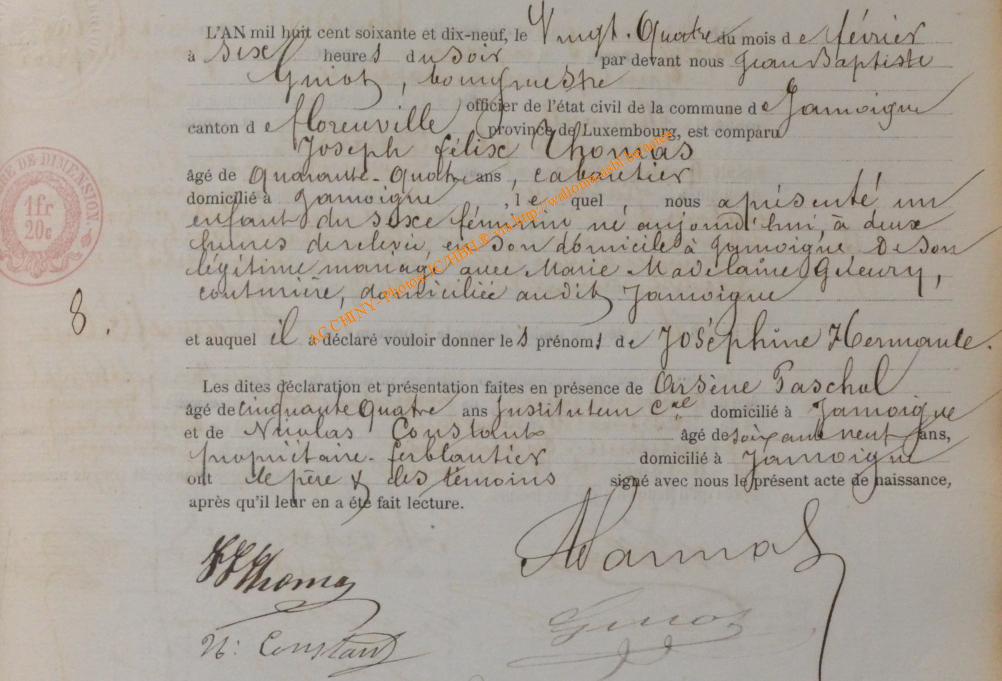 L'AN mil huit cent soixante et dix-neuf, le Vingt-Quatre du mois de février
à six heures du soir par devant nous Jean Baptiste
Guiot, bourgmestre
officier de l'état civil de la commune de Jamoigne
canton de florenville province de Luxembourg, est comparu
Joseph félix Thomas
âgé de Quarante-Quatre ans, cabaretier
domicilié à Jamoigne, lequel nous a présenté un
enfant du sexe féminin né aujourd'hui, à deux
heures de relevée, en son domicile à Jamoigne De son
légitime mariage avec Marie Madelaine
couturière, domiciliée audit Jamoigne
8.
et auquel il a déclaré vouloir donner les prénoms de Joséphine Hermance.
Les dites déclaration et présentation faites en présence de Arsène Paschal
âgé de cinquante Quatre ans Instituteur cal domicilié à Jamoigne
et de Nicolas Constant âgé de soixante neuf ans,
propriétaire-ferblantier domicilié à Jamoigne
ont le père & les témoins signé avec nous le présent acte de naissance,
après qu'il leur en a été fait lecture.
JF Thomas
N: Constant
Guiot
DE DIMENSION
1fr
20c
AC CHINY - Photos